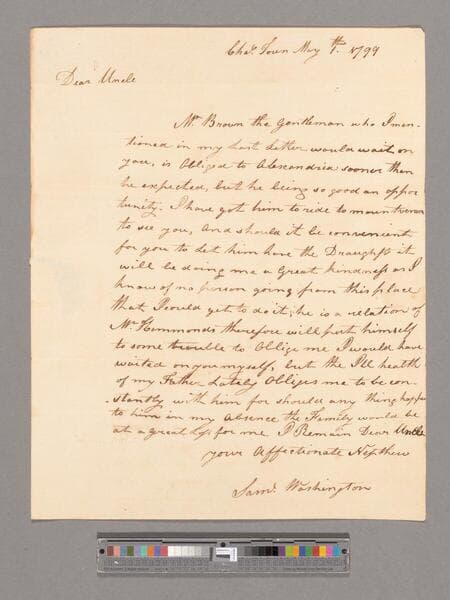 Chas. Town May 1th. 1799
Dear Uncle
Mr. Brown the Gentleman who I men-
tioned in my last Letter would wait on
you, is Obliged to Alexandria sooner than
he expected, but he being so good an oppor
tunity. I have got him to ride to mountvernon
to see you, And should it be convenient
for you to let him have the Draughft it
will be doing me a Great kindness as I
know of no person going from this place
that I could get to do it; he is a relation of
Mr. Hammonds therefore will putt himself
to some trouble to Oblige me I would have
waited on you myself, but the Ill health
of my Father Lately Obliges me to be con-
stantly with him for should any thing happen
to him in my Absence the Family would be
at a great loss for me I Remain Dear Uncle
your Affectionate Nephew
Saml. Washington